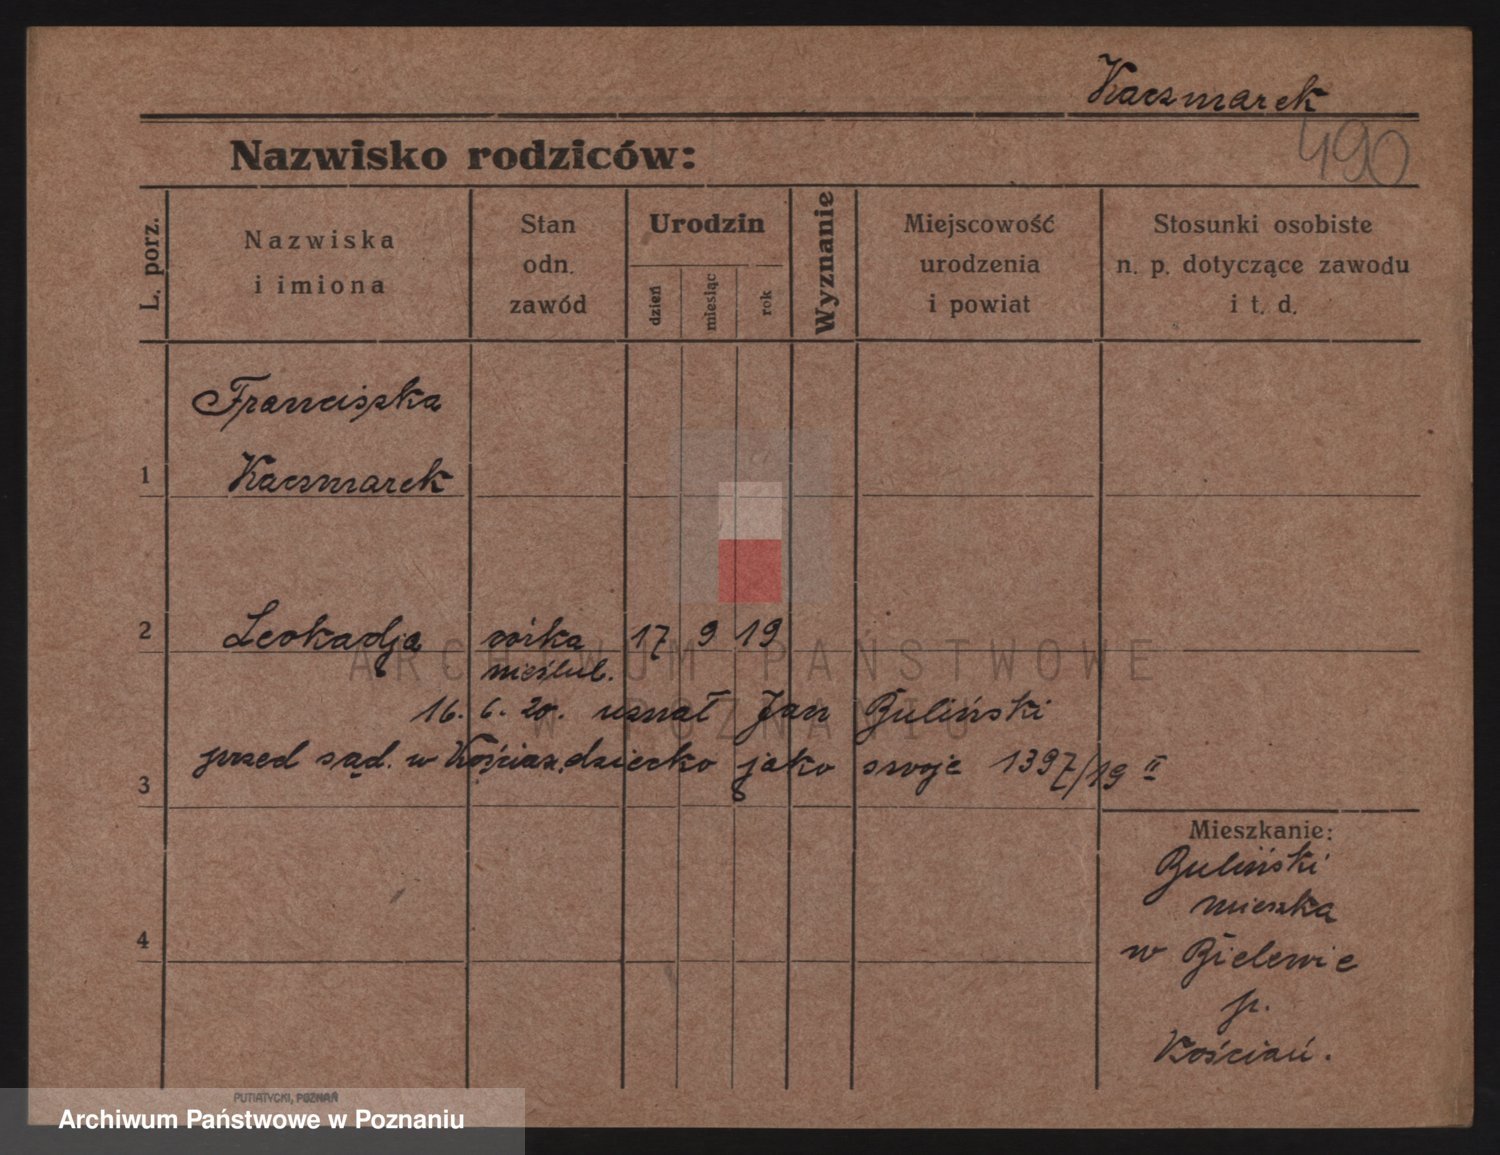 Kaczmarek
490
Nazwisko rodziców:
L. porz.
Nazwiska
i imiona
Stan
odn.
zawód
Urodzin
dzień
miesiąc
rok
Wyznanie
Miejscowość
urodzenia
i powiat
Stosunki osobiste
n. p. dotyczące zawodu
i t. d.
Franciszka
1 Kaczmarek
2 Leokadja córka 17 9 19
nieślub.
16. 6. 20. uznał Jan Buliński
przed sąd. w Kościan. dziecko jako swoje 1397/19 II
3
Mieszkanie:
Buliński
mieszka
w Bielewie
p.
Kościan.
4
ARCHIWUM PAŃSTWOWE
W POZNANIU
PUTIATYCKI, POZNAŃ
Archiwum Państwowe w Poznaniu